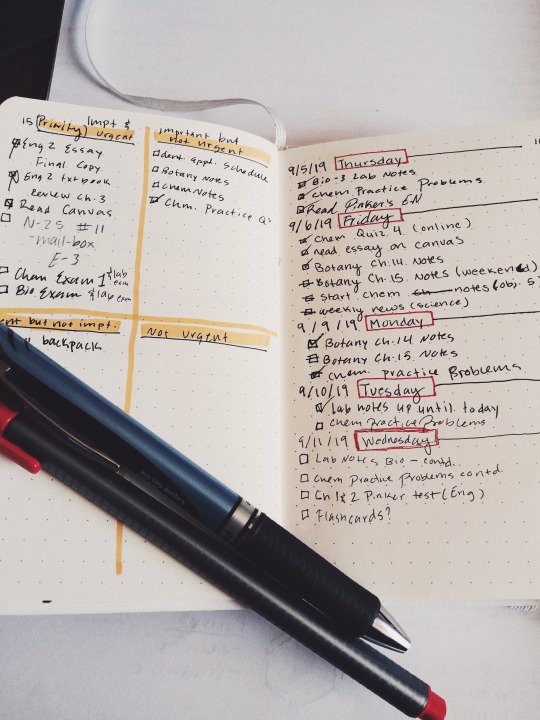 15
(Priority) Impt &
urgent
Eng 2 Essay
Final Copy
Eng 2 txtbook
review Ch. 3
Read Canvas
N-25 #11
-mail-box
E-3
Chem Exam 1 & lab
exam
Bio Exam & lab exam
important but
not urgent
dent. appl. schedule
Botany Notes
Chem Notes
Chm. Practice Q's
ent but not impt.
backpack
Not urgent
9/5/19 Thursday
Bio-3 Lab Notes
Chem Practice Problems
Read Pinker's EN
9/6/19 Friday
Chem Quiz 4 (online)
read essay on canvas
Botany Ch.14 Notes
Botany Ch.15 Notes (weekend)
Start chem notes (obj. 5)
weekly news (science)
9/9/19 Monday
Botany Ch.14 Notes
Botany Ch.15 Notes
Chem. practice Problems
9/10/19 Tuesday
Lab notes up until today
chem practice Problems
9/11/19 Wednesday
Lab Notes Bio - contd.
Chem Practice Problems contd.
Ch 1 & 2 Pinker test (Eng)
Flashcards?